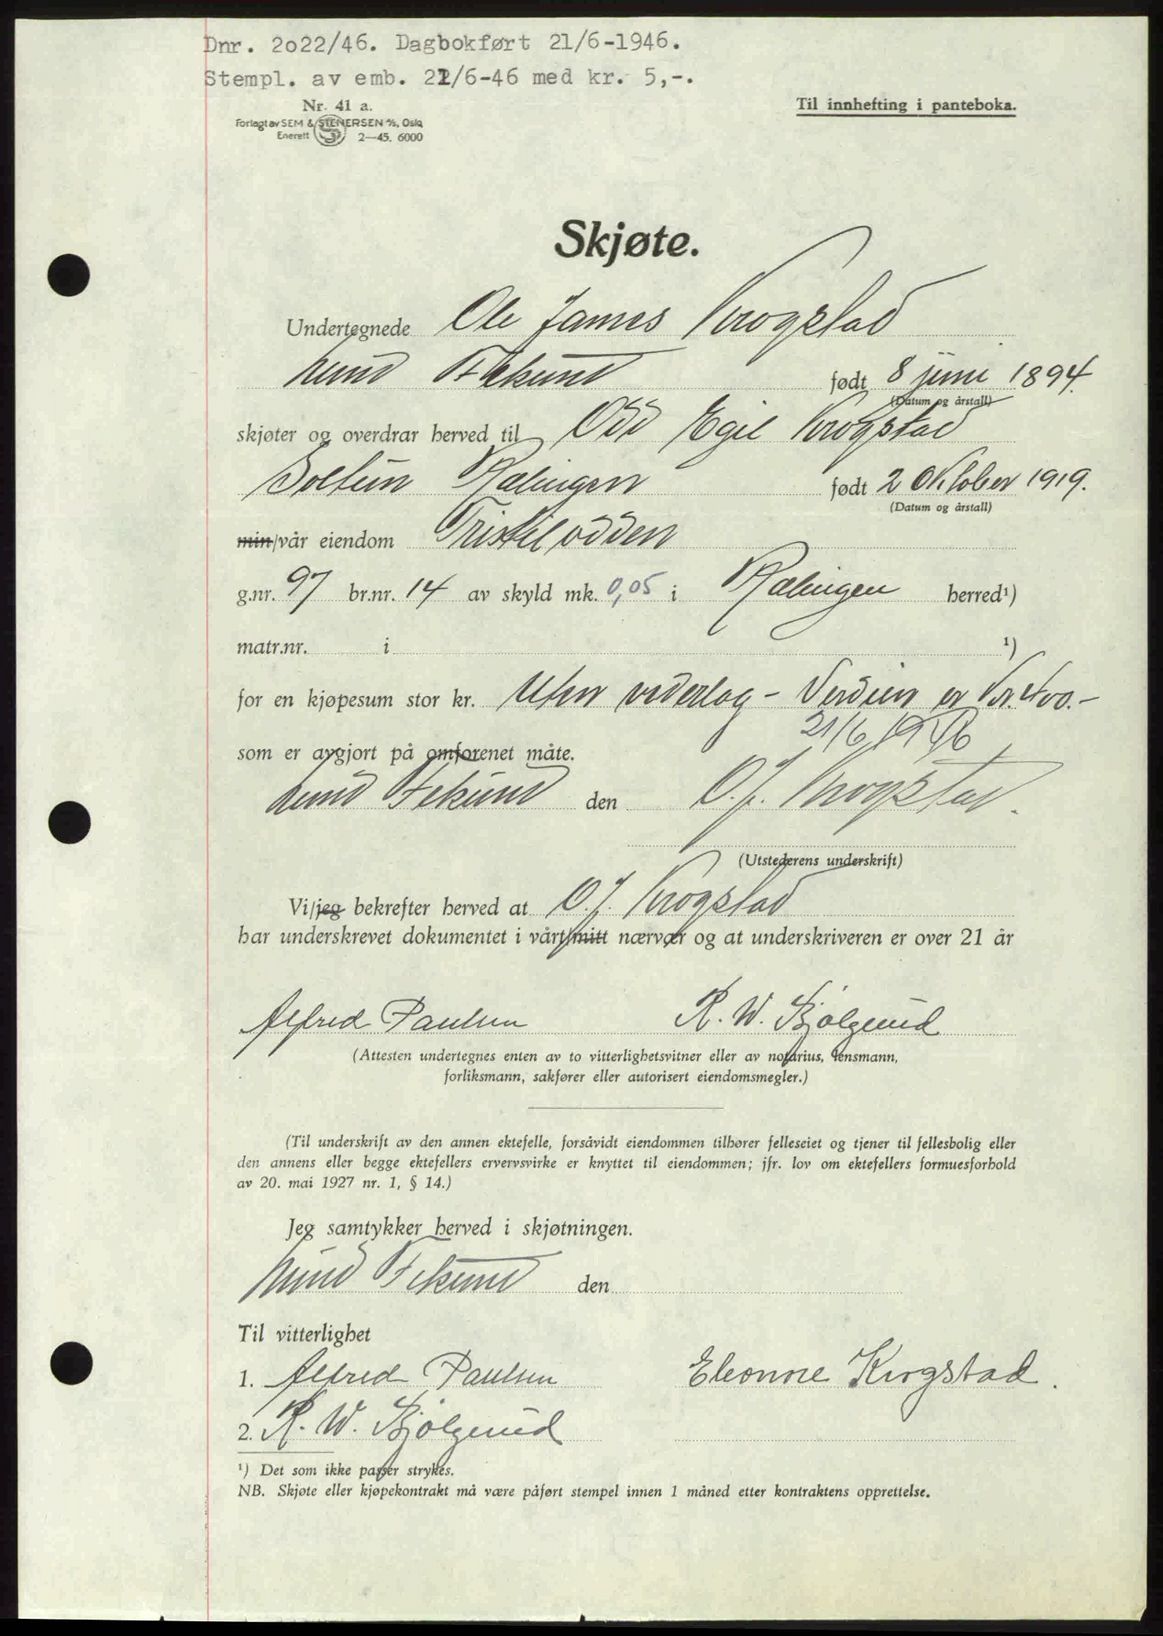 Dnr. 2022/46. Dagbokført 21/6-1946.
Stempl. av emb. 21/6-46 med kr. 5,-.
Nr. 41 a.
Til innhefting i panteboka.
Forlagt av SEM & STENERSEN A/S, Oslo
Enerett 2—45. 6000
Skjøte.
Undertegnede Ole James Krogstad
født 8 juni 1894.
(Datum og årstall)
skjøter og overdrar herved til Odd Egil Krogstad
Soltun Rælingen født 2 Oktober 1919.
(Datum og årstall)
min/vår eiendom Tristilodden
g.nr. 97 br.nr. 14 av skyld mk. 0,05 i Rælingen herred¹)
matr.nr. i ¹)
for en kjøpesum stor kr. Uten vederlag - Verdien er kr. 400.-
21/6 1946
som er avgjort på omforenet måte.
den O. J. Krogstad.
(Utstederens underskrift)
Vi/jeg bekrefter herved at O. J. Krogstad
har underskrevet dokumentet i vårt/mitt nærvær og at underskriveren er over 21 år
Alfred Paulsen R. W. Bjølgerud
(Attesten undertegnes enten av to vitterlighetsvitner eller av notarius, lensmann,
forliksmann, sakfører eller autorisert eiendomsmegler.)
(Til underskrift av den annen ektefelle, forsåvidt eiendommen tilhører felleseiet og tjener til fellesbolig eller
den annens eller begge ektefellers ervervsvirke er knyttet til eiendommen; jfr. lov om ektefellers formuesforhold
av 20. mai 1927 nr. 1, § 14.)
Jeg samtykker herved i skjøtningen.
den
Til vitterlighet
1. Alfred Paulsen Eleonore Krogstad.
2. R. W. Bjølgerud
¹) Det som ikke passer strykes.
NB. Skjøte eller kjøpekontrakt må være påført stempel innen 1 måned etter kontraktens opprettelse.